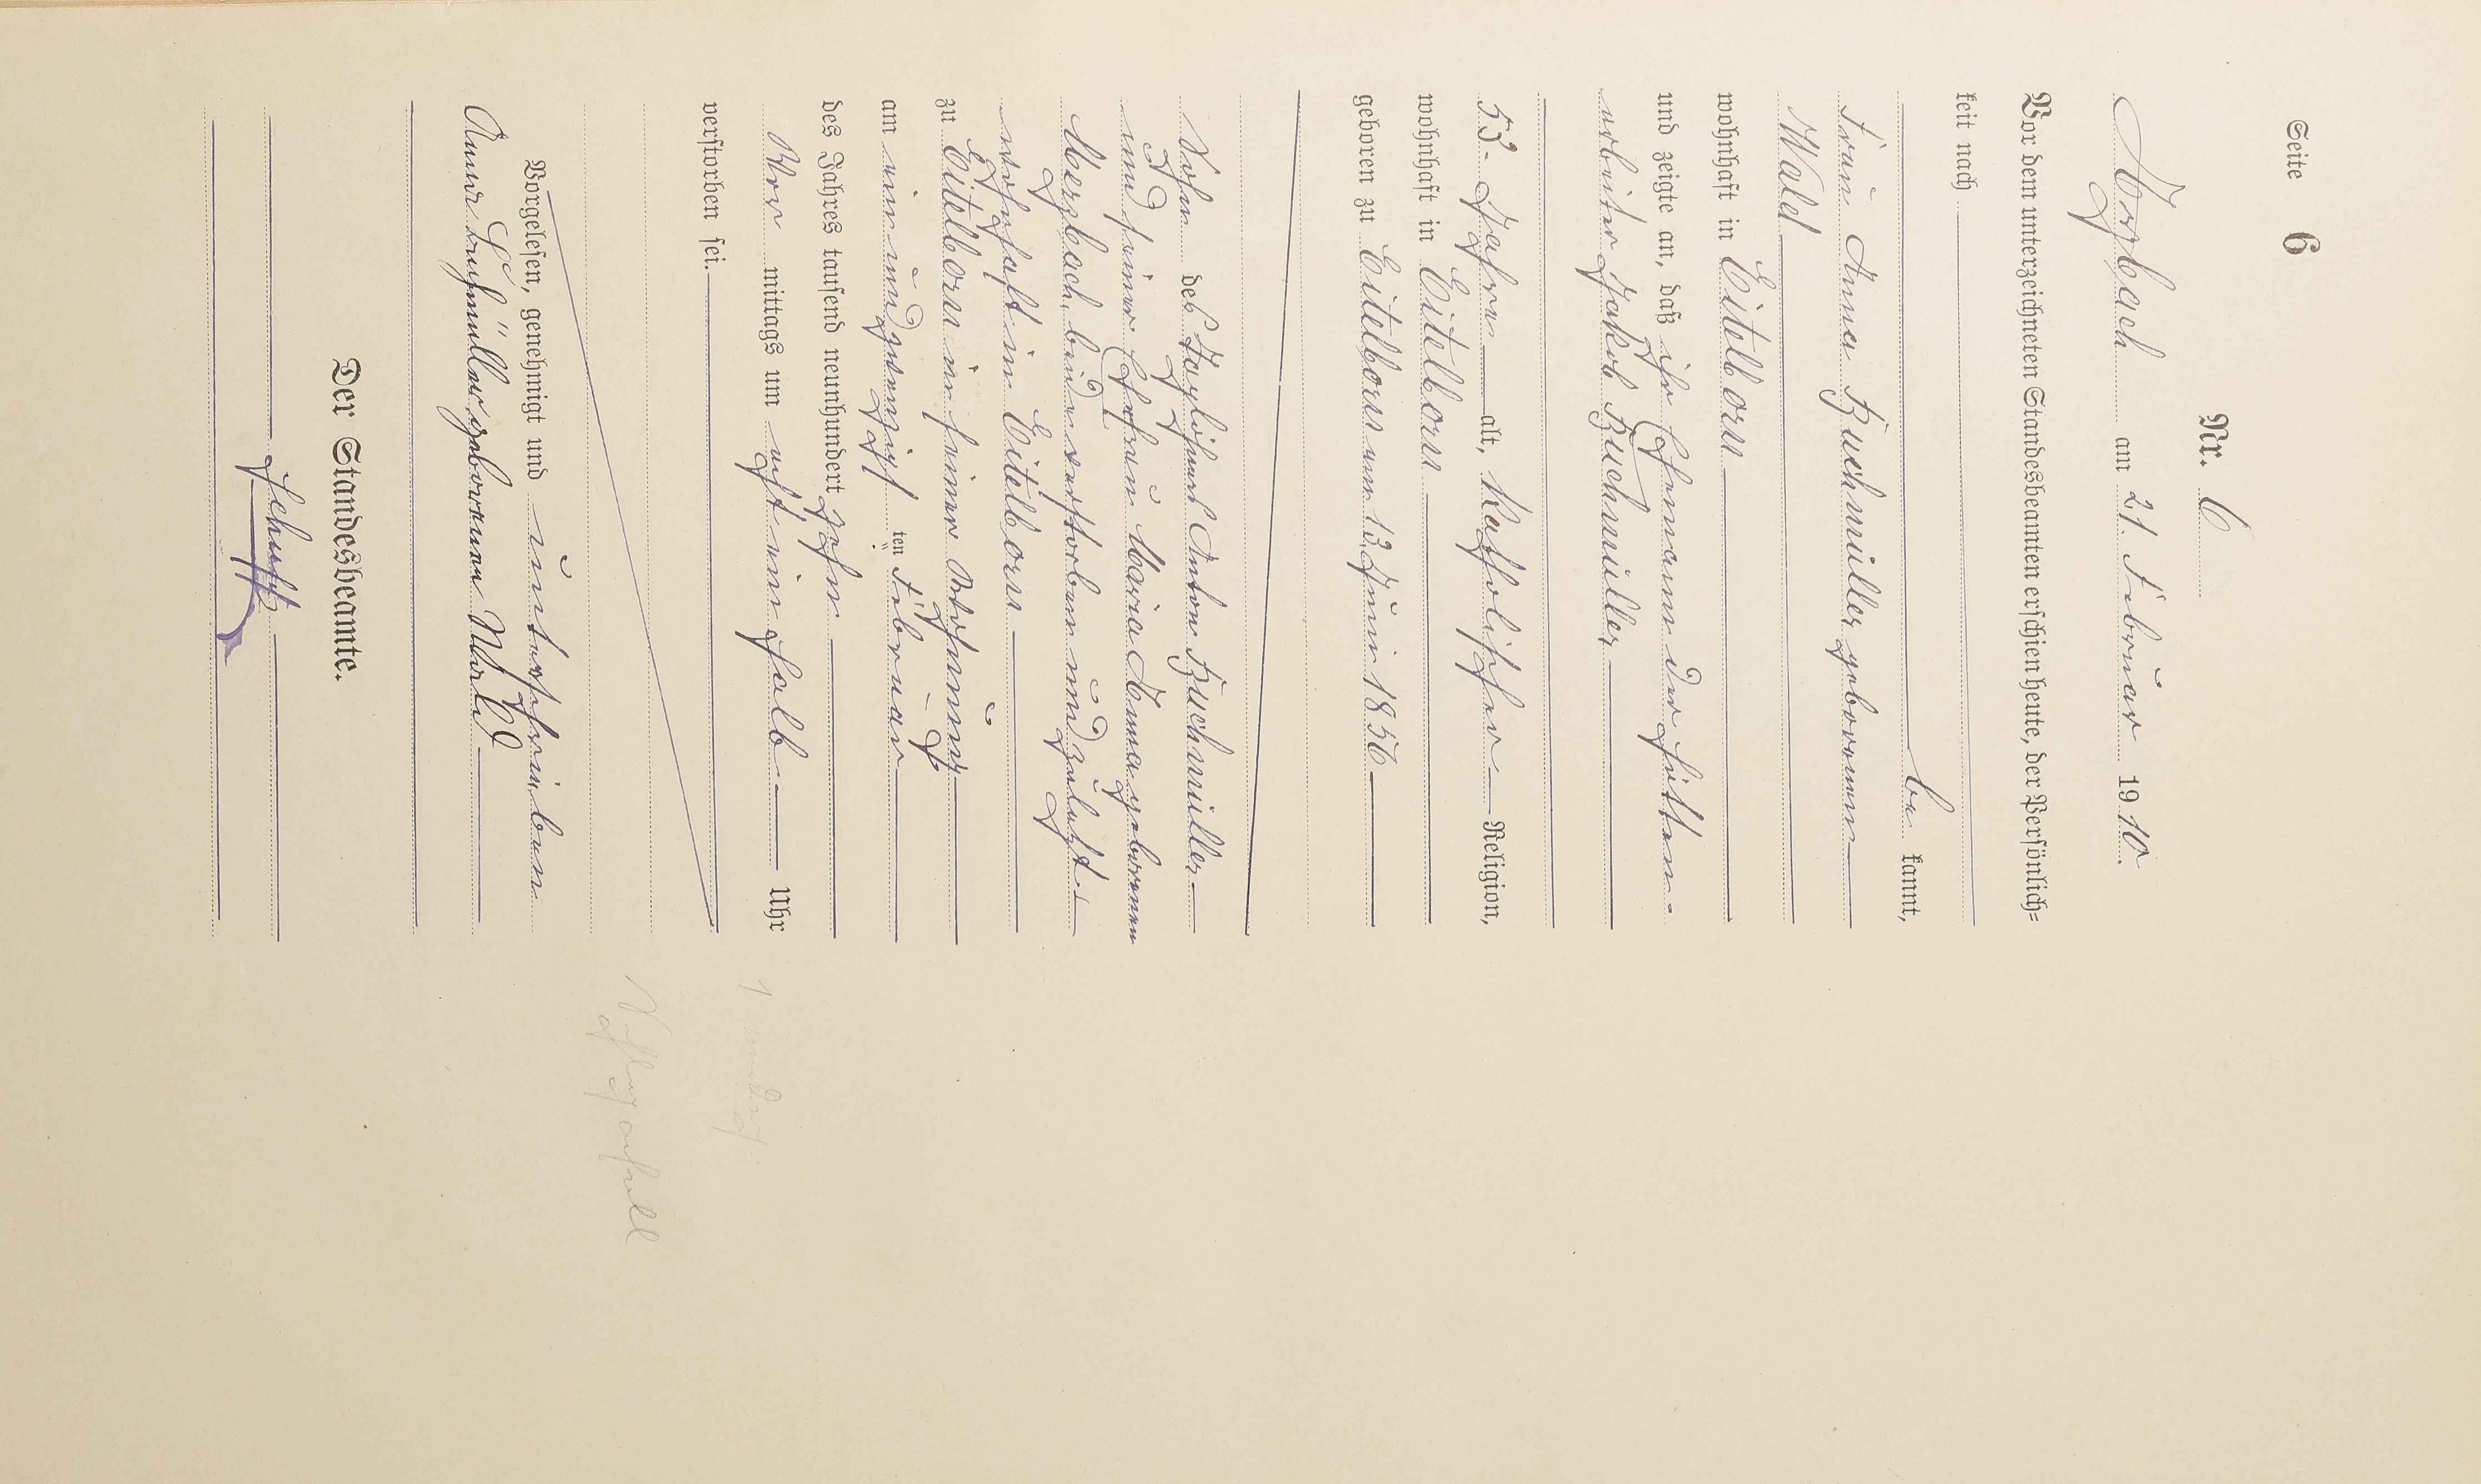 Seite 6
Nr. 6
Arzbach am 21. Februar 1910.
Vor dem unterzeichneten Standesbeamten erschien heute, der Persönlich=
keit nach
be kannt,
Frau Anna Buchmüller geborenen
Wald
wohnhaft in Eitelborn
und zeigte an, daß ihr Ehemann der Hütten-
arbeiter Jakob Buchmüller
53 Jahre alt, Katholischer Religion,
wohnhaft in Eitelborn
geboren zu Eitelborn am 13. Juni 1856
Sohn des Taglöhners Anton Buchmüller
und seiner Ehefrau Maria Anna geborenen
Merzbach, beide verstorben und zuletzt
wohnhaft in Eitelborn
zu Eitelborn in seiner Wohnung
am einundzwanzigsten Februar
des Jahres tausend neunhundert zehn
Vor mittags um acht ein halb Uhr
verstorben sei.
Vorgelesen, genehmigt und unterschrieben
Anna Buchmüller geborenen Wald
Der Standesbeamte.